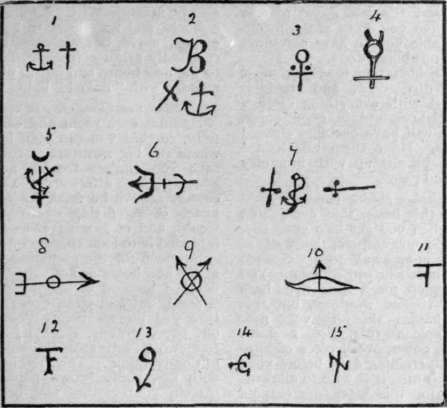 1 2 3 4
B
X
5 6 7
8 9 10 11
F
12 13 14 15
F